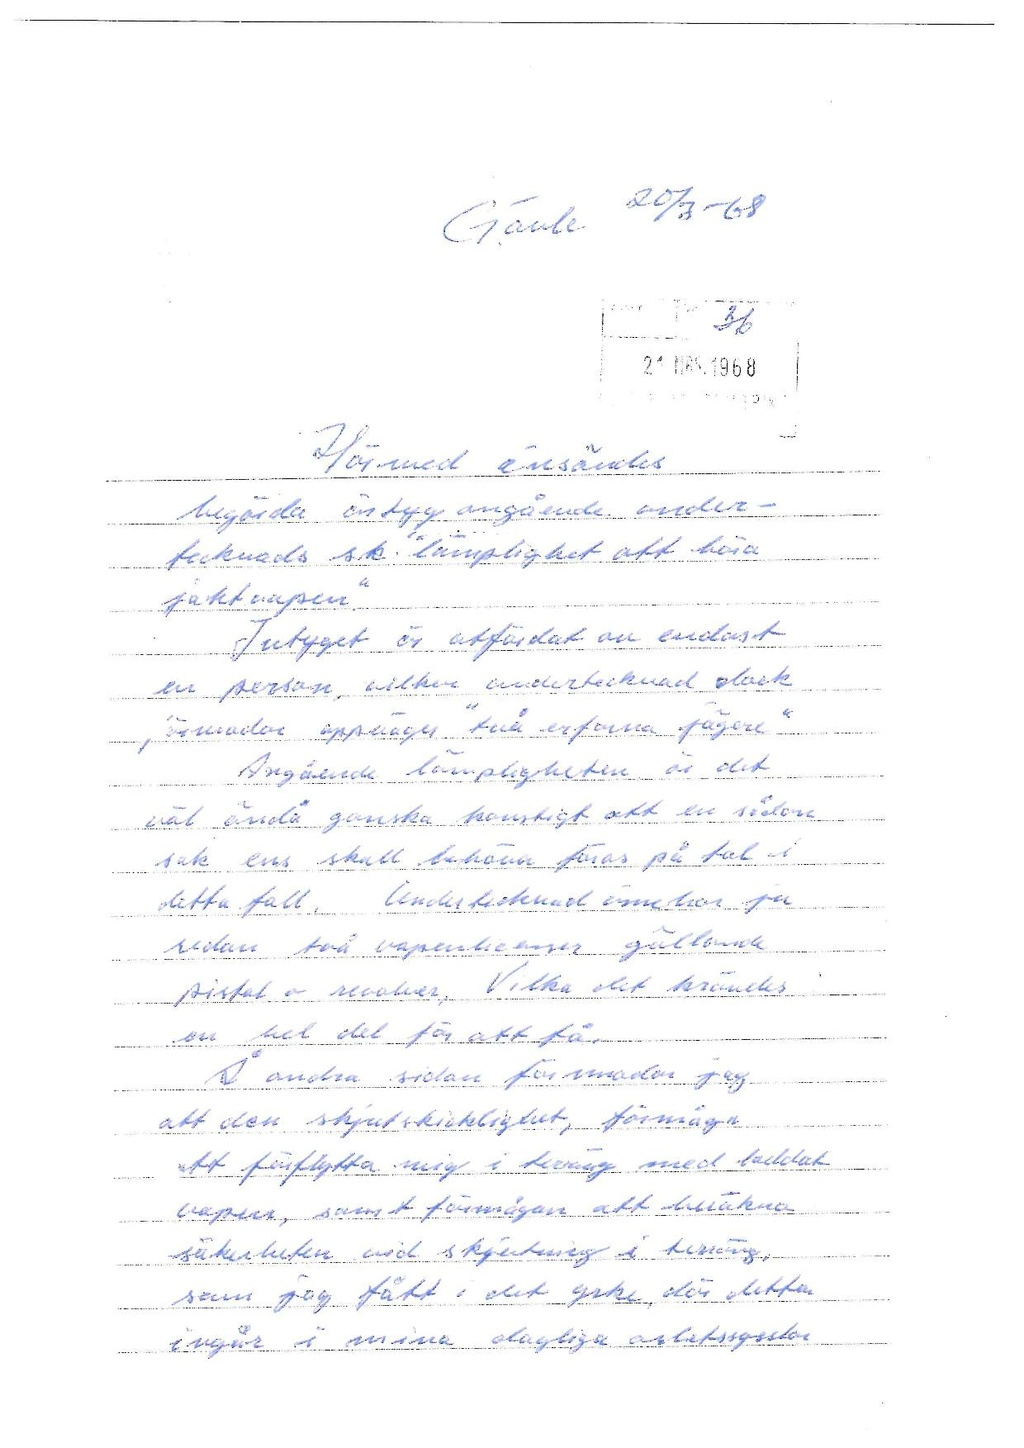 Gävle 20/3-68
36
21 MRS. 1968
Härmed insändes
begärda intyg angående under-
tecknads sk. "lämplighet att bära
jaktvapen"
Intyget är utfärdat av endast
en person, vilken undertecknad dock
förmodar uppväger "två erfarna jägare"
Angående lämpligheten är det
väl ändå ganska konstigt att en sådan
sak ens skall behöva föras på tal i
detta fall. Undertecknad innehar ju
redan två vapenlicenser gällande
pistol o revolver, Vilka det krävdes
en hel del för att få.
Å andra sidan förmodar jag
att den skjutskicklighet, förmåga
att förflytta mig i terräng med laddat
vapen, samt förmågan att beräkna
säkerheten vid skjutning i terräng,
som jag fått i det yrke, där detta
ingår i mina dagliga arbetssysslor